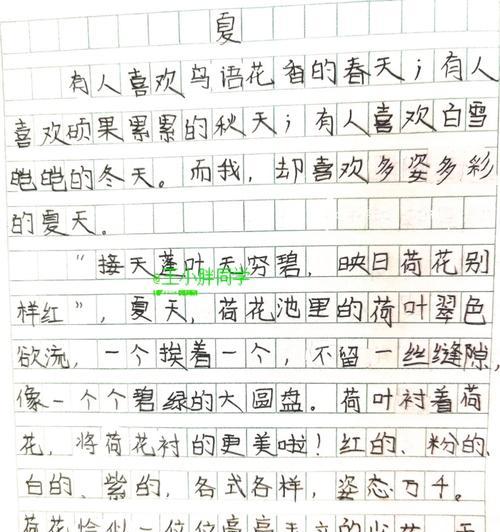 夏
有人喜欢鸟语花香的春天；有人
喜欢硕果累累的秋天；有人喜欢白雪
皑皑的冬天。而我，却喜欢多姿多彩
的夏天。
“接天莲叶无穷碧，映日荷花别
@王小胖同学
样红”，夏天，荷花池里的荷叶翠色
欲流，一个挨着一个，不留一丝缝隙，
像一个个碧绿的大圆盘。荷叶衬着荷
花，将荷花衬的更美啦！红的、粉的、
白的、紫的，各式各样，姿态万千。
荷花恰似一位位亭亭玉立的少女，